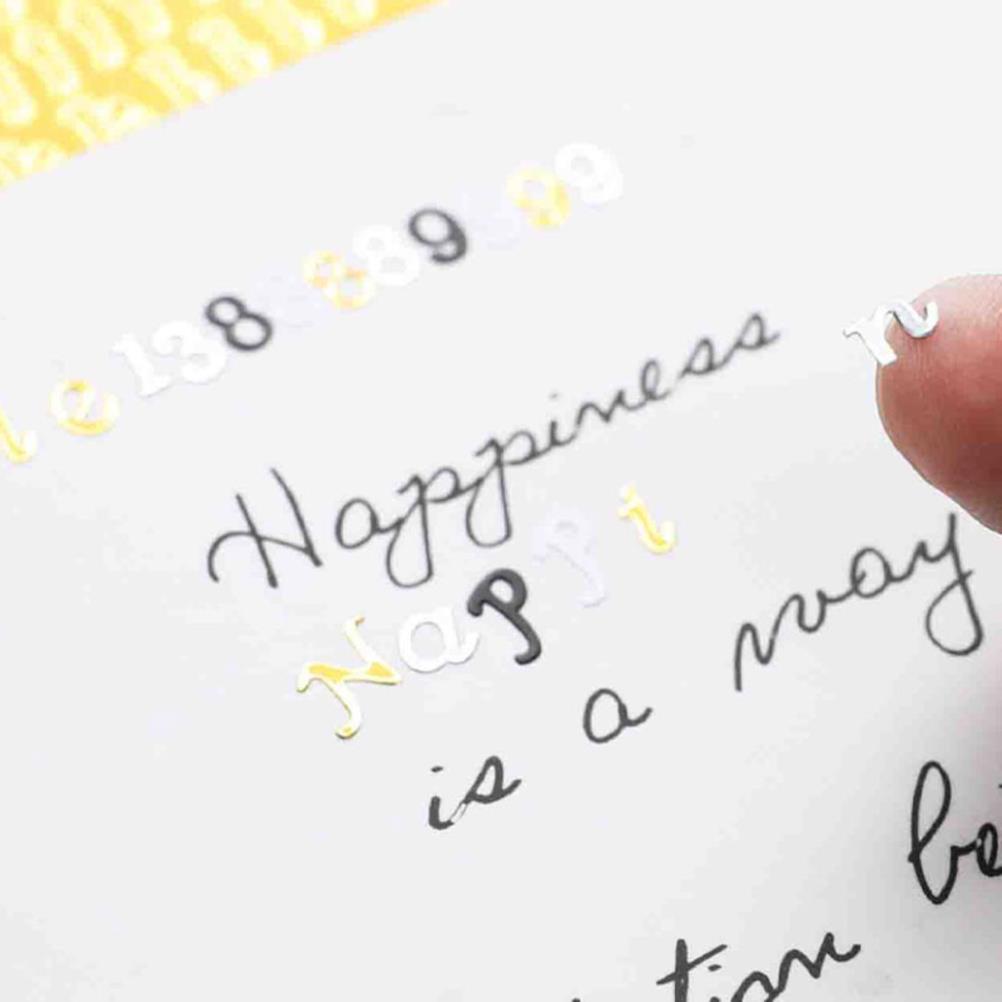 le138 889 99
Happiness
n
Nappi
is a way
be
tion